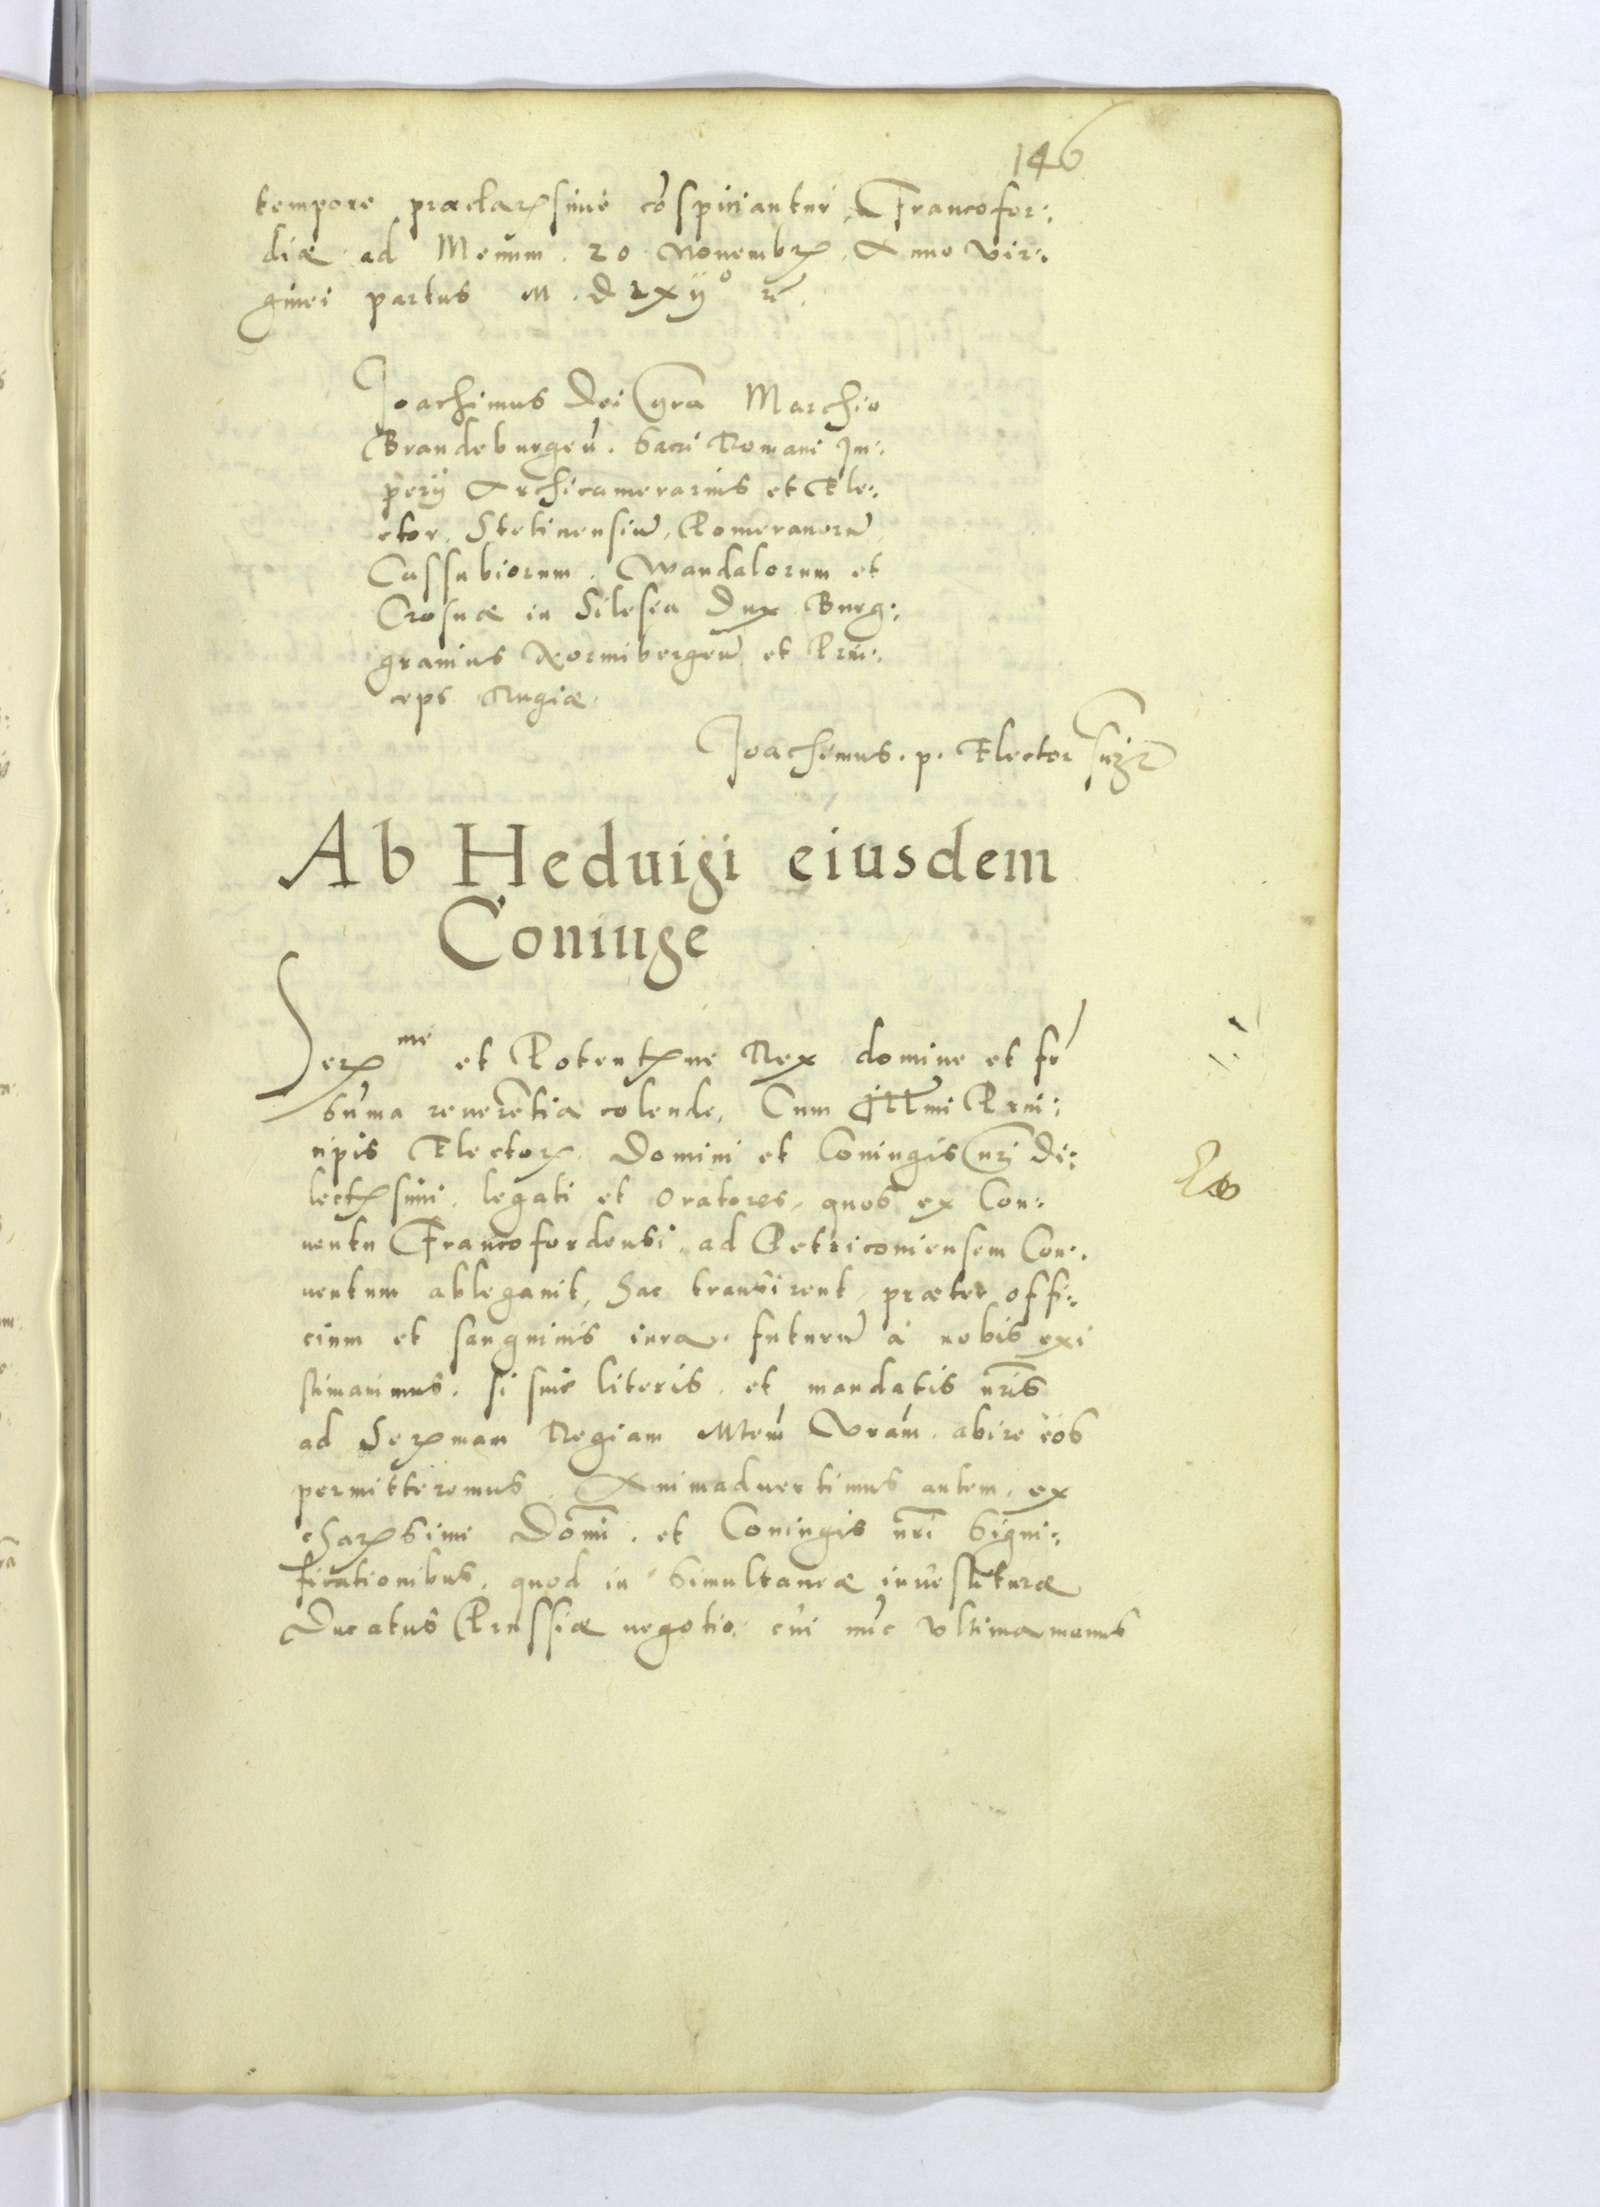 146
tempore praeclarissime cōspiciantur, Francofor:
diæ ad Menum. 20 Nouembris, Anno Vir:
ginei partus M. D LXIIº
Joachimus Dei Gra Marchio
Brandeburgeñ. Sacri Romani Im:
perij Archicamerarius et Ele:
ctor, Stetinensiū, Pomeranorū
Cassubiorum, Wandalorum et
Crosnæ in Silesia Dux Burg:
grauius Normibergeñ et Prin:
ceps Rugiæ.
Joachimus. p. Elector sszt
Ab Heduigi eiusdem
Coniuge
Serme et Potentme Rex domine et fr
suma reuerētia colende, Cum Illmi Prin:
cipis Electoris Domini et Coniugis nri di:
lectissimi, legati et oratores, quos ex Con:
uentu Francofordensi, ad Petriconiensem Con:
uentum ablegauit, hac transirent, præter offi:
cium et sanguinis iura, futurū à nobis exi
stimauimus, si sine literis et mandatis nris
ad Sermam Regiam Mtem Vram abire eos
permitteremus. Animaduertimus autem, ex
charissimi Domi. et Coniugis nri signi:
ficationibus, quod in simultaneæ inuestituræ
Ducatus Prussiæ negotio, cui nūc vltima manus